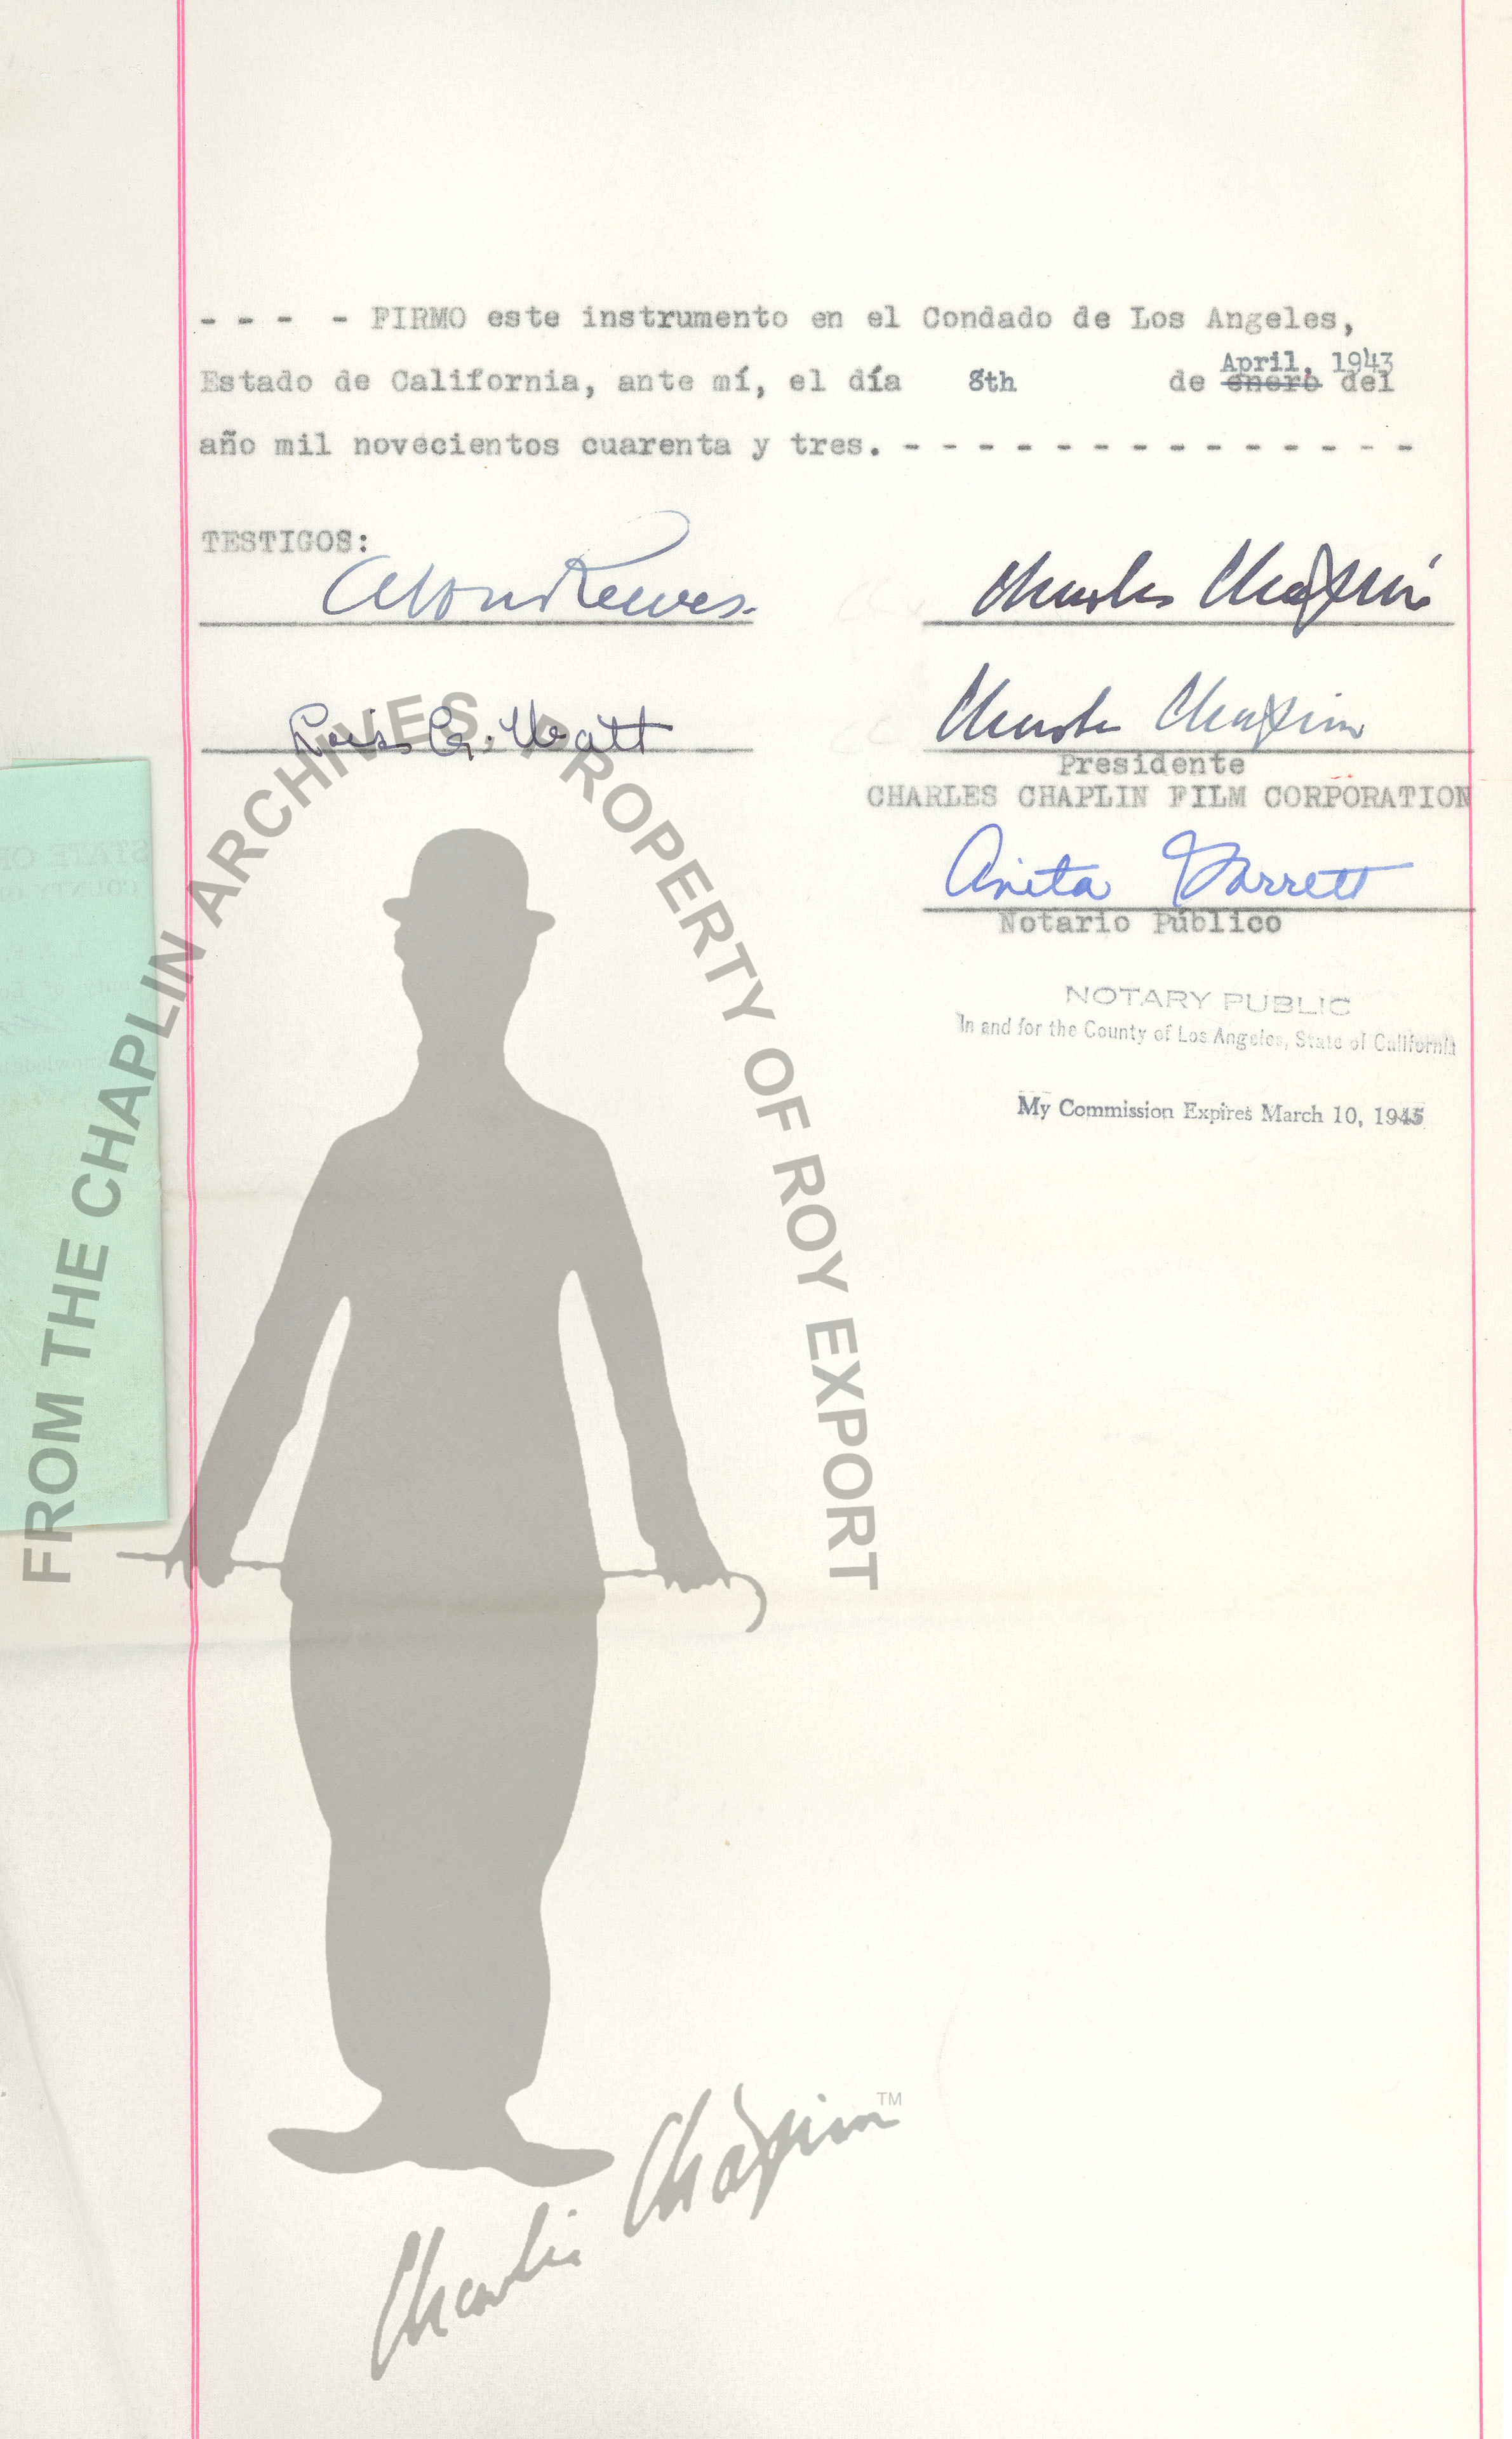 - - - - FIRMO este instrumento en el Condado de Los Angeles,
April, 1943
Estado de California, ante mí, el día 8th de enero del
año mil novecientos cuarenta y tres. - - - - - - - - - - - - - - -
TESTIGOS:
Alf Reeves
Charles Chaplin
Lois C. Watt
Charles Chaplin
Presidente
CHARLES CHAPLIN FILM CORPORATION
Anita Garrett
Notario Público
NOTARY PUBLIC
In and for the County of Los Angeles, State of California
My Commission Expires March 10, 1945
STATE OF
COUNTY OF
FROM THE CHAPLIN ARCHIVES PROPERTY OF ROY EXPORT
Charlie Chaplin TM